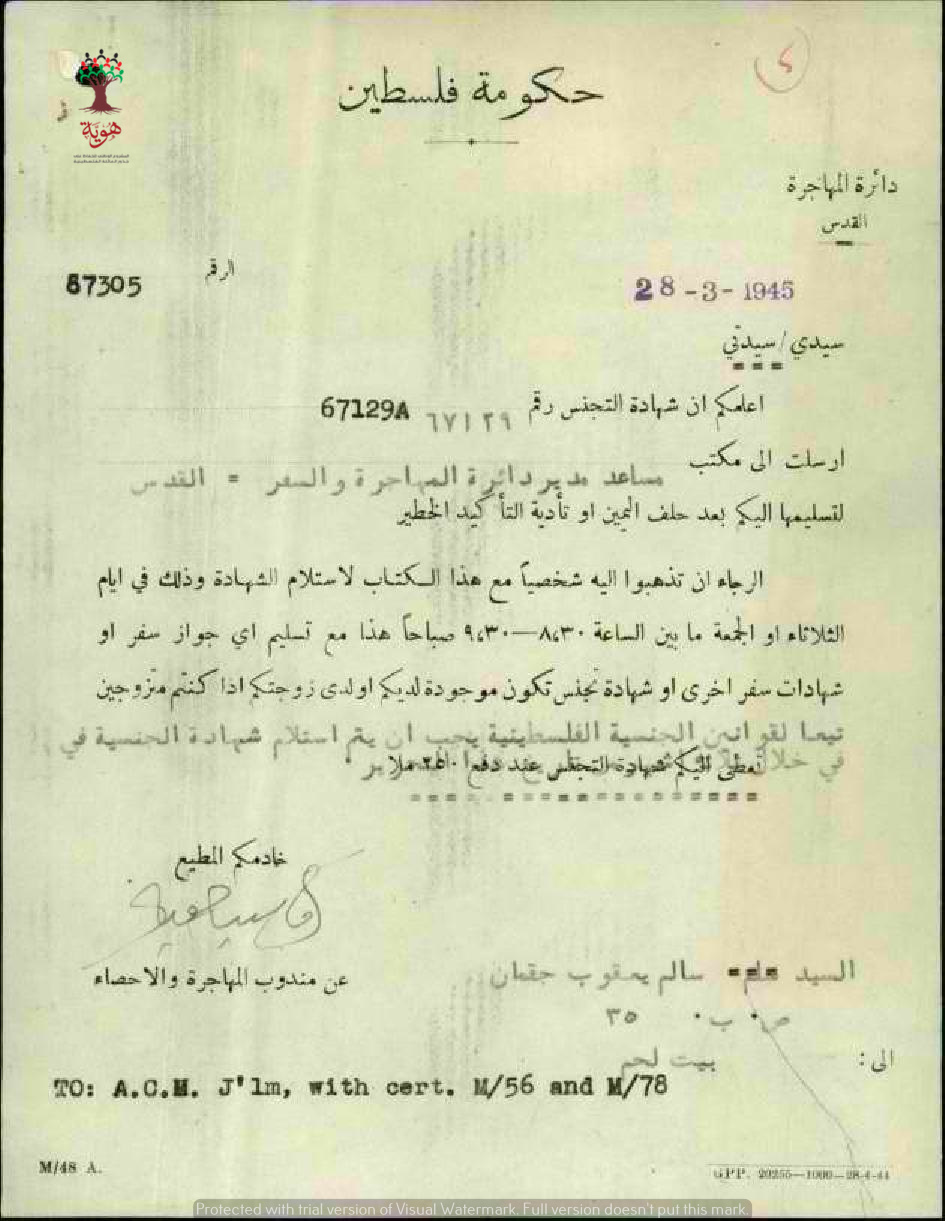 هوية
حكومة فلسطين
دائرة المهاجرة
القدس
الرقم
67305
28-3-1945
سيدي/سيدتي
اعلمكم ان شهادة التجنس رقم ٦٧١٢٩ 67129A
ارسلت الى مكتب مساعد مدير دائرة المهاجرة والسفر = القدس
لتسليمها اليكم بعد حلف اليمين او تأدية التأكيد الخطير
الرجاء ان تذهبوا اليه شخصياً مع هذا الكتاب لاستلام الشهادة وذلك في ايام
الثلاثاء او الجمعة ما بين الساعة ٨،٣٠—٩،٣٠ صباحاً هذا مع تسليم اي جواز سفر او
شهادات سفر اخرى او شهادة تجنس تكون موجودة لديكم او لدى زوجتكم اذا كنتم متزوجين
تبعا لقوانين الجنسية الفلسطينية يجب ان يتم استلام شهادة الجنسية في
في خلال
تعطى اليكم شهادة التجنس عند دفع ٢٥٠ ملا
خادمكم المطيع
عن مندوب المهاجرة والاحصاء
السيد سالم يعقوب حقمان
ص ب ٣٥
بيت لحم
الى :
TO: A.C.M. J'lm, with cert. M/56 and M/78
M/48 A.
GPP. 20255—1000—28-4-44
Protected with trial version of Visual Watermark. Full version doesn't put this mark.